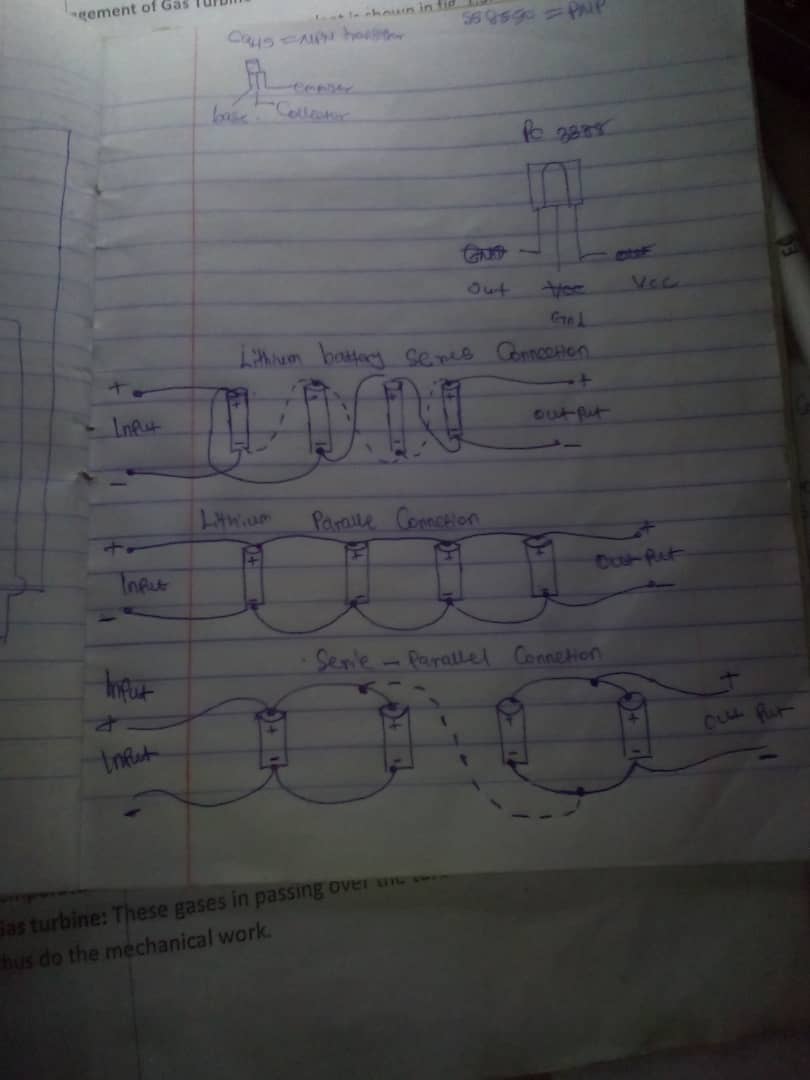 agement of Gas Turbin
shown in fig
SS8550 = PNP
C945 = NPN transistor
emitter
base
Collector
PC 3388
GND
out
Out
Vcc
Vcc
Gnd
Lithium battery Series Connection
+
+
Input
output
-
-
Lithium Paralle Connection
+
+
Input
Output
-
-
Serie - Parallel Connetion
Input
+
+
Input
Out Put
-
-
Gas turbine: These gases in passing over the
thus do the mechanical work.